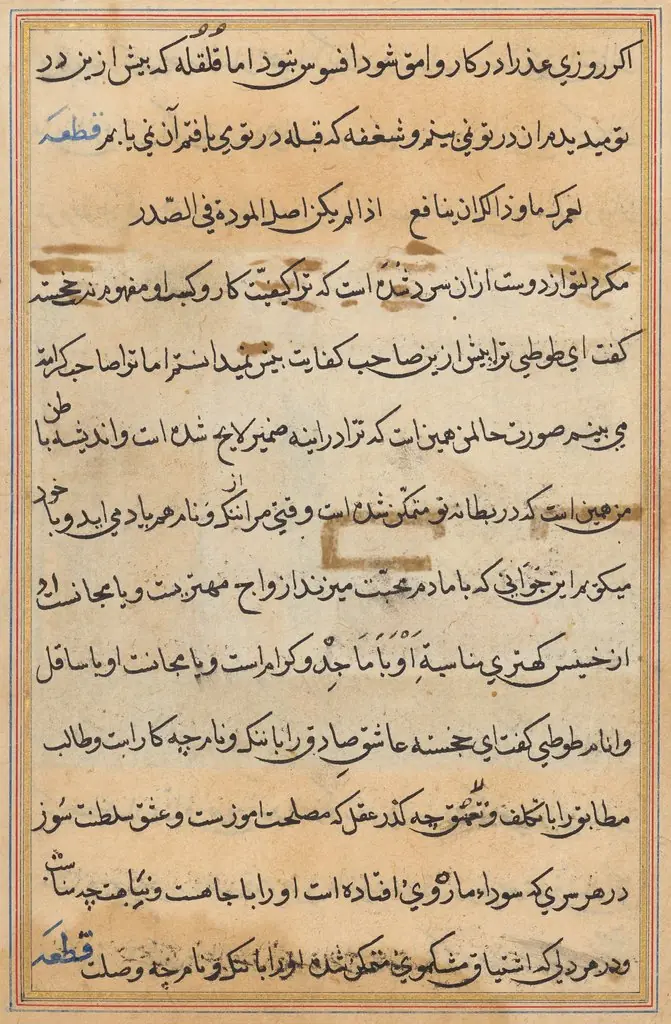 اکر روزی عذرا در کار وامق شود افسوس بنود اما قلقله که بیش ازین در
تو میدیدم ان در تو نمی بینم و شغفه که قبله در تو می یافتم آن نمی یابم قطعه
لعمرک ما وذا کران ینافع اذا لم یکن اصل المودة فی الصّدر
مکر دلتو از دوست ازان سرد شده است که ترا کیفیّت کار و کسب او مفهوم خجسته
کفت ای طوطی ترا بیش ازین صاحب کفایت بیش نمیدانستم اما ترا صاحب کرامت
می بینم صورت حال من همین است که ترا در اینه ضمیر لایح شده است و اندیشه باطن
من همین است که در بطانه تو متمکّن شده است وقتی مرا از ننک و نام هم یاد می اید و با خود
میکویم این جوانی که با ما دم محبّت میزند از واج مهتریست و یا مجانست او
از خسیس کهتری مناسبة او با ماجد و کرام است و یا مجانست او با ساقل
وانام طوطی کفت ای خجسته عاشق صادق را با ننک و نام چه کار است و طالب
مطابق را با تکلف و تعشق چه کذر عقل که مصلحت اموزست و عشق سلطنت سوز
در هر سری که سوداء ماه روی افتاده است او را با جاهت و نباهت چه مناسبت
و در هر دلی که اشتیاق مشکموی متمکن شده او را با ننک و نام چه وصلت قطعه